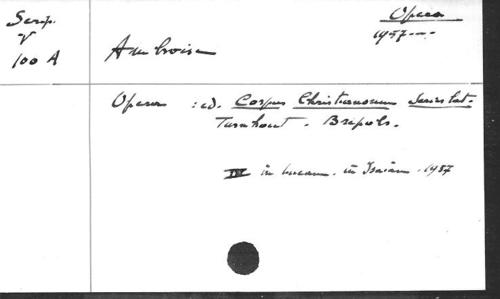 Scrip.
V
100 A
Opera
1957---
Ambroise
Opera : ed. Corpus Christianorum Series lat.
Turnhout. Brepols.
IV in Lucam. in Isaiam. 1957